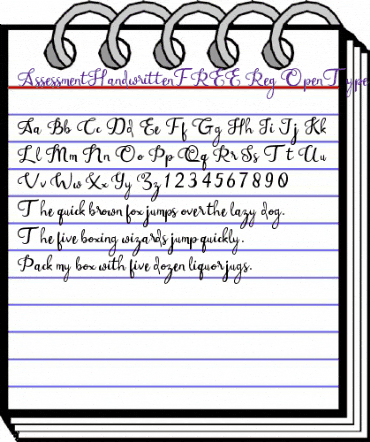 AssessmentHandwrittenFREE Reg OpenType
Aa Bb Cc Dd Ee Ff Gg Hh Ii Jj Kk
Ll Mm Nn Oo Pp Qq Rr Ss Tt Uu
Vv Ww Xx Yy Zz 1 2 3 4 5 6 7 8 9 0
The quick brown fox jumps over the lazy dog.
The five boxing wizards jump quickly.
Pack my box with five dozen liquor jugs.